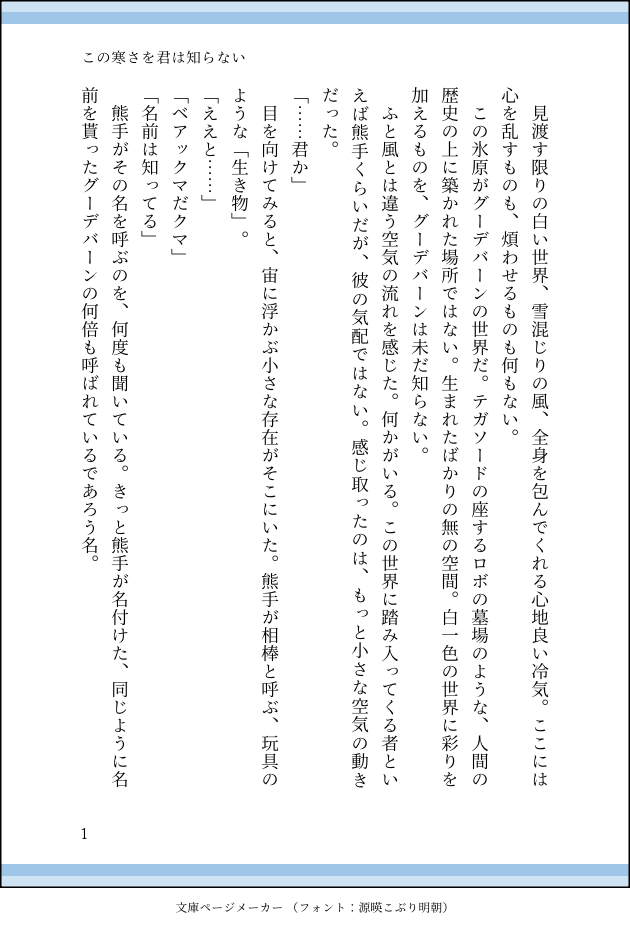 この寒さを君は知らない
　見渡す限りの白い世界、雪混じりの風、全身を包んでくれる心地良い冷気。ここには
心を乱すものも、煩わせるものも何もない。
　この氷原がグーデバーンの世界だ。テガソードの座するロボの墓場のような、人間の
歴史の上に築かれた場所ではない。生まれたばかりの無の空間。白一色の世界に彩りを
加えるものを、グーデバーンは未だ知らない。
　ふと風とは違う空気の流れを感じた。何かがいる。この世界に踏み入ってくる者とい
えば熊手くらいだが、彼の気配ではない。感じ取ったのは、もっと小さな空気の動き
だった。
「……君か」
　目を向けてみると、宙に浮かぶ小さな存在がそこにいた。熊手が相棒と呼ぶ、玩具の
ような「生き物」。
「ええと……」
「ベアックマだクマ」
「名前は知ってる」
　熊手がその名を呼ぶのを、何度も聞いている。きっと熊手が名付けた、同じように名
前を貰ったグーデバーンの何倍も呼ばれているであろう名。
1
文庫ページメーカー（フォント：源暎こぶり明朝）